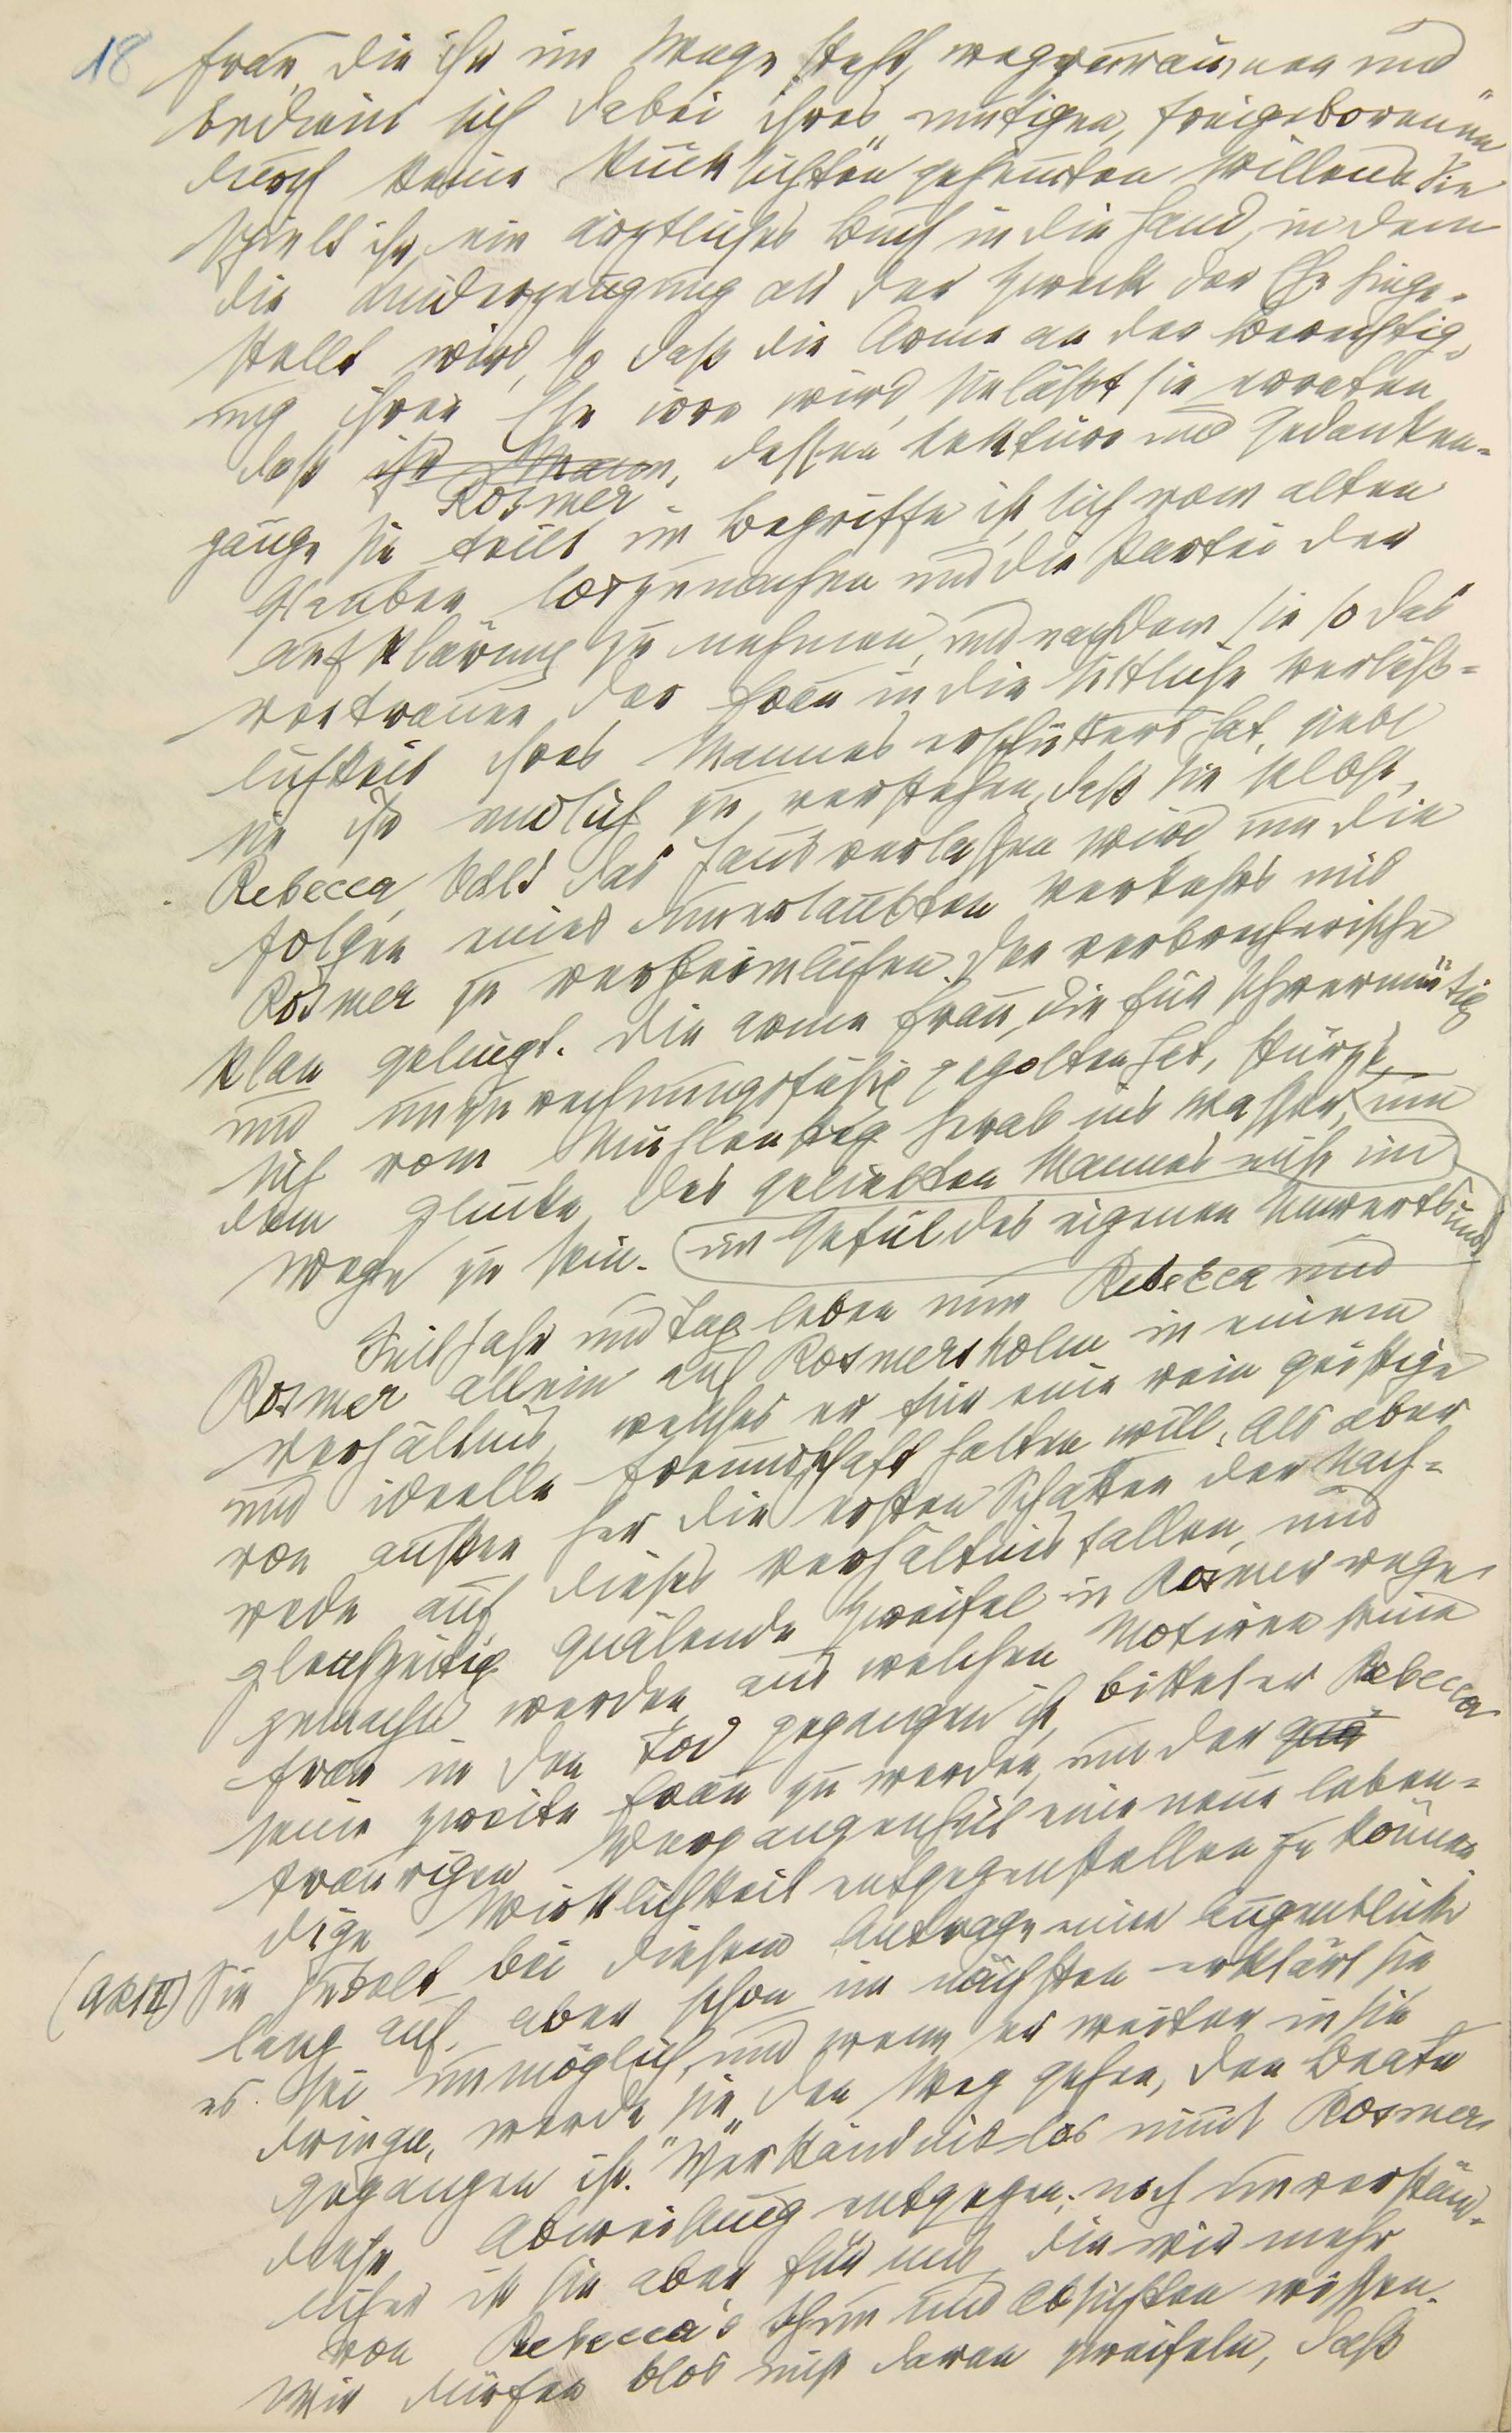 18
Frau, die ihr im Wege steht, wegzuräumen und
bedient sich dabei ihres „mutigen, freigeborenen
durch keine Rücksichten" gehem̄ten Willens. Sie
spielt ihr ein ärztliches Buch in die Hand, in dem
die Kinderzeugung als der Zweck der Ehe hinge-
stellt wird, so daß die Arme an der Berechtig-
ung ihrer Ehe irre wird, sie läßt sie erraten
daß ihr Mann, dessen Lektüre und Gedanken-
Rosmer
gänge sie teilt im Begriffe ist, sich vom alten
Glauben loszumachen und die Partei der
Aufklärung zu nehmen, und nachdem sie so das
Vertrauen der Frau in die sittliche Verläß-
lichkeit ihres Mannes erschüttert hat, giebt
sie ihr endlich zu verstehen, daß sie selbst,
Rebecca, bald das Haus verlassen wird um die
Folgen eines unerlaubten Verkehrs mit
Rosmer zu verheimlichen. Der verbrecherische
Plan gelingt. Die arme Frau, die für schwermütig
und unzurechnungsfähig gegolten hat, stürzt
sich vom Mühlensteg herab ins Wasser, um
dem Glücke des geliebten Mannes nicht im
Wege zu sein. im Gefül des eigenen Unwerts und
Seit Jahr und Tag leben nun Rebecca und
Rosmer allein auf Rosmersholm in einem
Verhältnis, welches er für eine rein geistige
und ideelle Freundschaft halten will. Als aber
von außen her die ersten Schatten der Nach-
rede auf dieses Verhältnis fallen, und
gleichzeitig quälende Zweifel in Rosmer rege
gemacht werden, aus welchen Motiven seine
Frau in den Tod gegangen ist, bittet er Rebecca
seine zweite Frau zu werden, um der
traurigen Vergangenheit eine neue leben-
dige Wirklichkeit entgegenstellen zu können
(Akt II) Sie jubelt bei diesem Antrage einen Augenblick
lang auf, aber schon im nächsten erklärt sie
es sei unmöglich, und wenn er weiter in sie
dringe, werde sie „den Weg gehen, den Beate
gegangen ist." Verständnislos nim̄t Rosmer
diese Abweisung entgegen; noch unverständ-
licher ist sie aber für uns, die wir mehr
von Rebecca's Thun und Absichten wissen.
Wir dürfen blos nicht daran zweifeln, daß